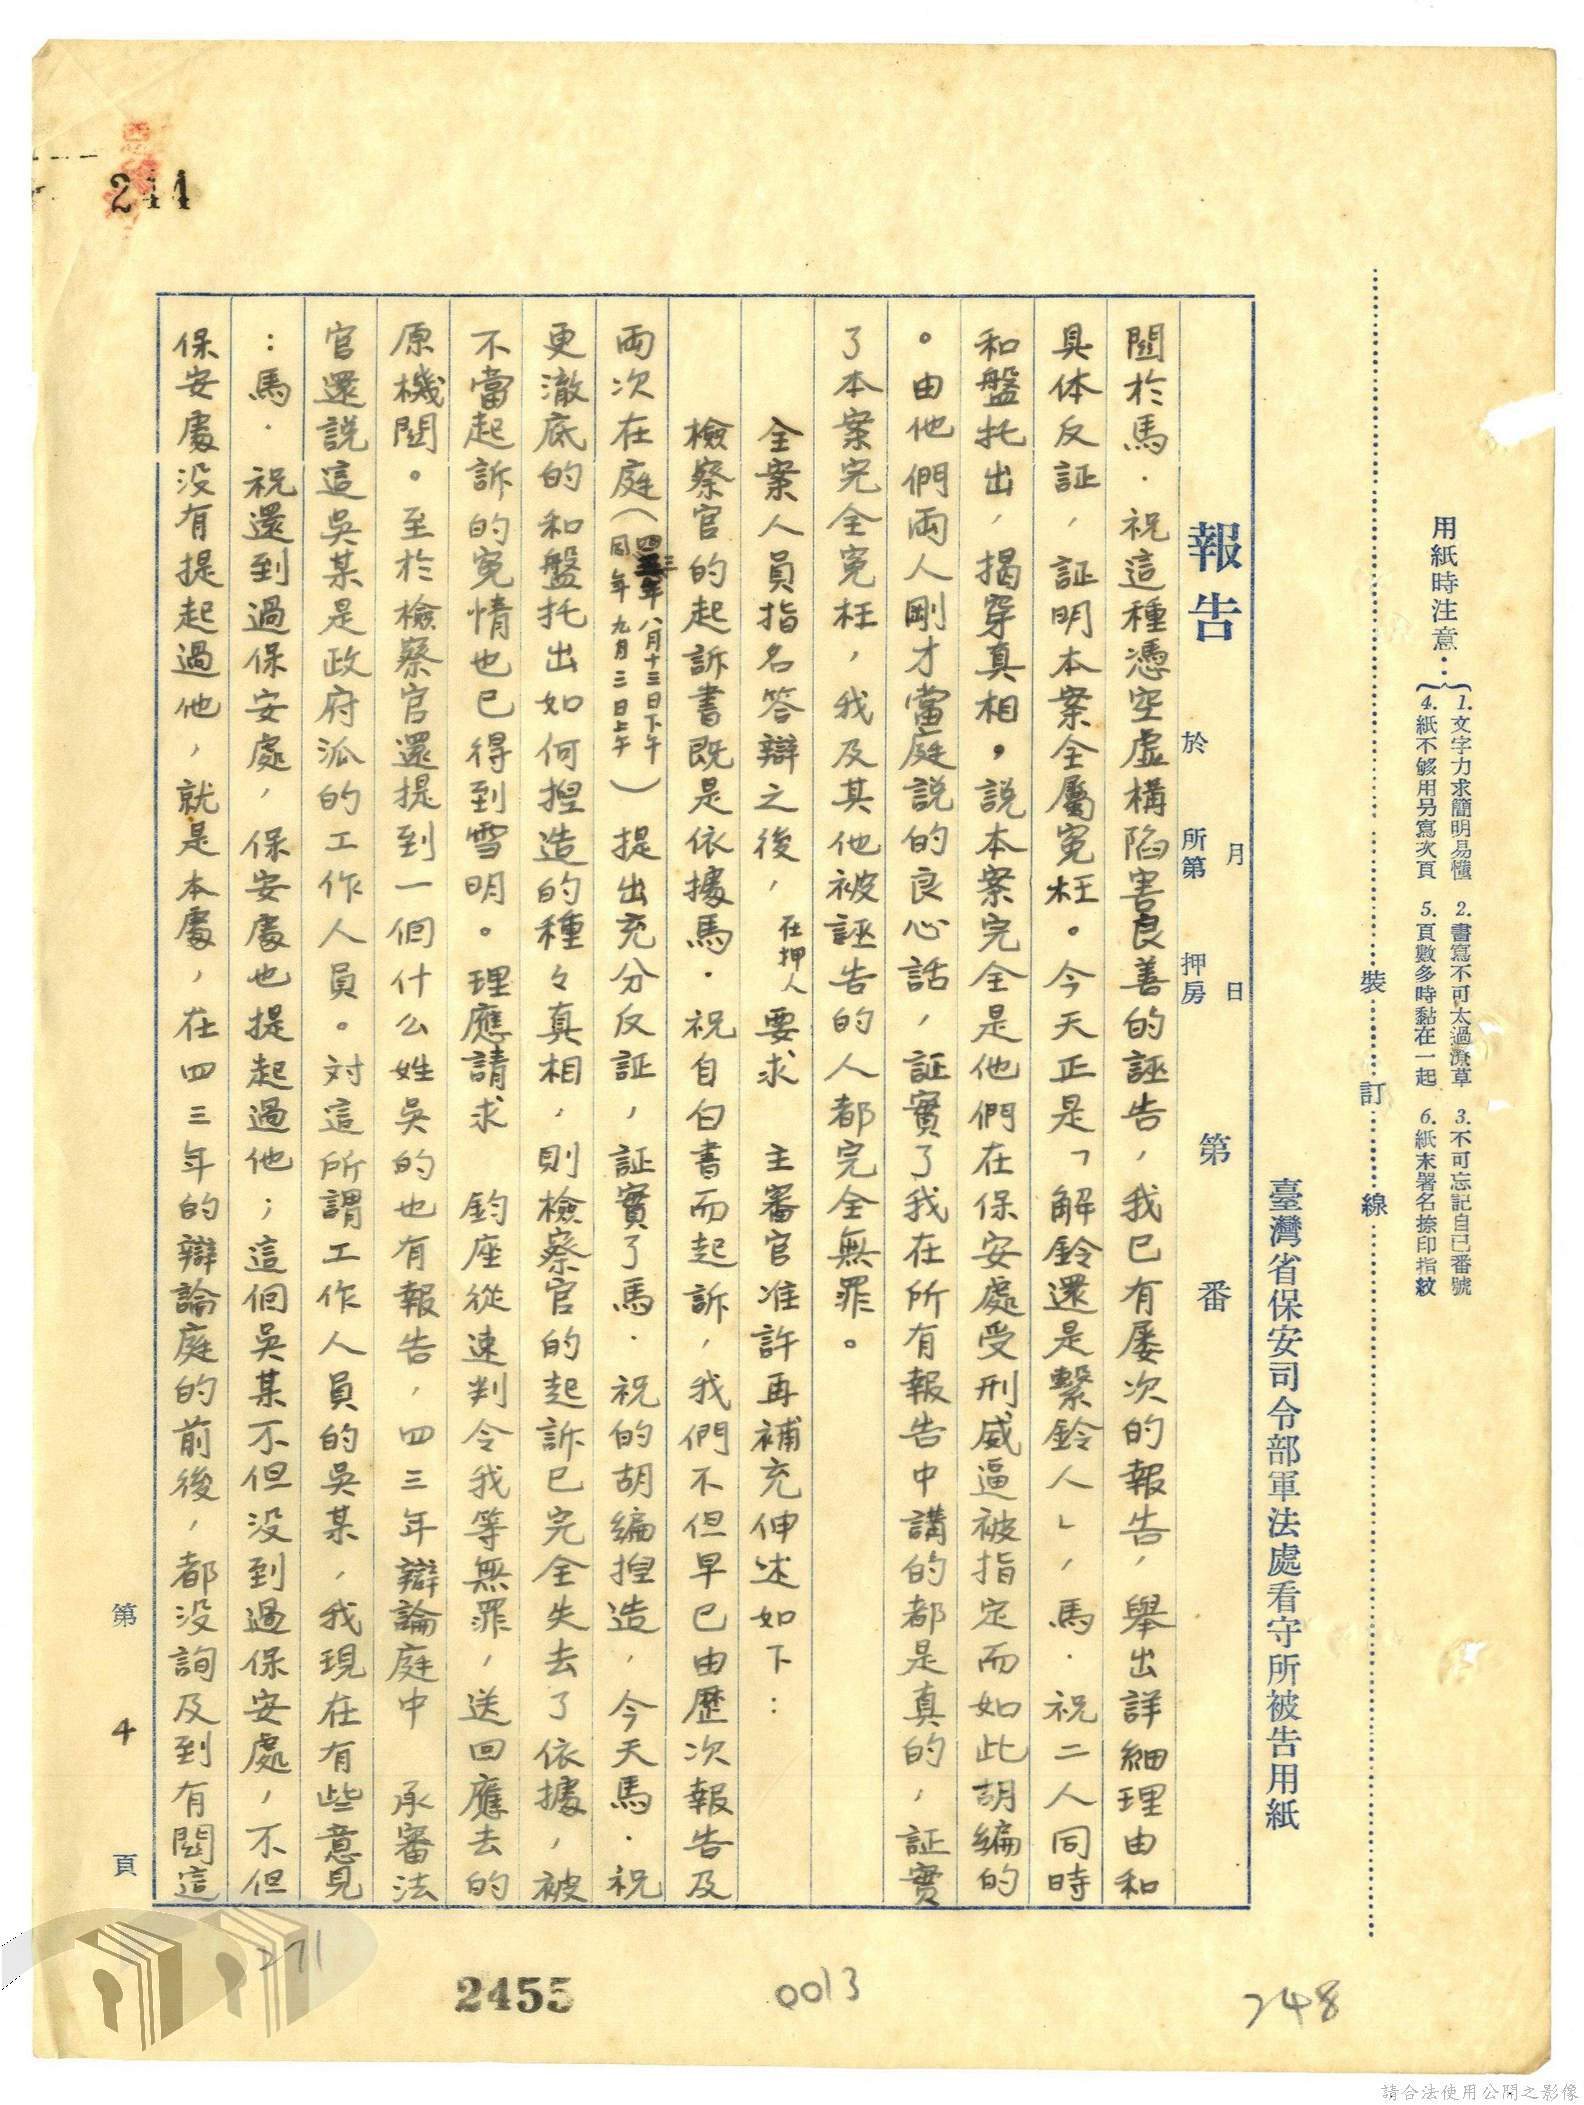 用紙時注意：
1.文字力求簡明易懂 2.書寫不可太過潦草 3.不可忘記自己番號
4.紙不够用另寫次頁 5.頁數多時黏在一起 6.紙末署名捺印指紋
裝 訂 線
臺灣省保安司令部軍法處看守所被告用紙
月 日
報告 於 所第 押房 第 番
関於馬．祝這種憑空虛構陷害良善的誣告，我已有屡次的報告，舉出詳細理由和
具体反証，証明本案全屬冤枉。今天正是「解鈴還是繫鈴人」，馬．祝二人同時
和盤托出，揭穿真相，說本案完全是他們在保安處受刑威逼被指定而如此胡編的
。由他們両人剛才當庭說的良心話，証實了我在所有報告中講的都是真的，証實
了本案完全冤枉，我及其他被誣告的人都完全無罪。
全案人員指名答辯之後，在押人要求 主審官准許再補充伸述如下：
檢察官的起訴書既是依據馬．祝自白書而起訴，我們不但早已由歷次報告及
両次在庭（四三年八月十三日下午 同年九月三日上午）提出充分反証，証實了馬．祝的胡編揑造，今天馬．祝
更澈底的和盤托出如何揑造的種々真相，則檢察官的起訴已完全失去了依據，被
不當起訴的冤情也已得到雪明。理應請求 鈞座從速判令我等無罪，送回應去的
原機関。至於檢察官還提到一個什么姓吳的也有報告，四三年辯論庭中 承審法
官還説這吳某是政府派的工作人員。对這所謂工作人員的吳某，我現在有些意見
：馬．祝還到過保安處，保安處也提起過他；這個吳某不但没到過保安處，不但
保安處没有提起過他，就是本處，在四三年的辯論庭的前後，都没詢及到有関這
第 4 頁
244
271
2455
0013
248
請合法使用公開之影像